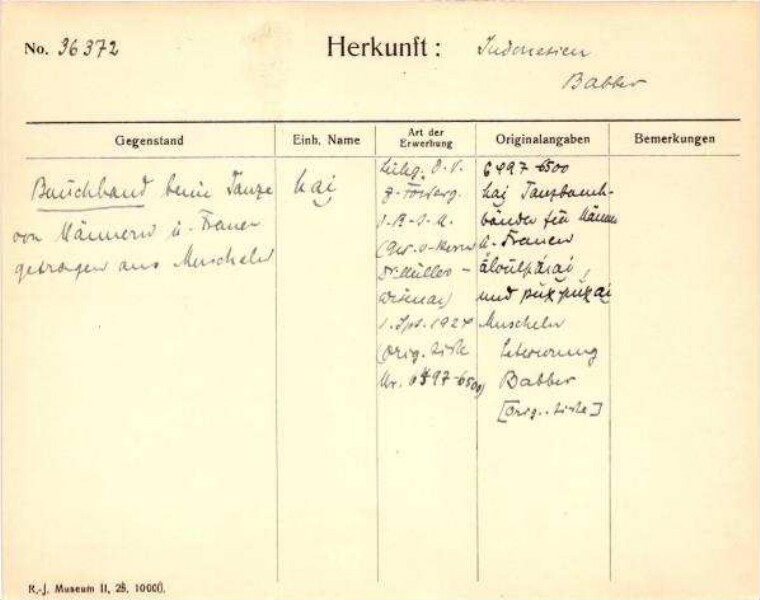 No. 36372
Herkunft: Indonesien
Babber
Gegenstand
Einh. Name
Art der
Erwerbung
Originalangaben
Bemerkungen
Bauchband beim Tanze
von Männern u. Frauen
getragen aus Muscheln
kaj
Leihg. D. V.
z. Förderg.
d. R-J-M.
(Ges. v. Herrn
Dr. Müller-
Wismar)
1. Spt. 1927
(Orig. Liste
Nr. 6497-6500)
6497-6500
kaj Tanzbauch-
bänder für Männer
u. Frauen
und
Muscheln
Babber
[Orig.-Liste]
R.-J. Museum II, 28. 10000.